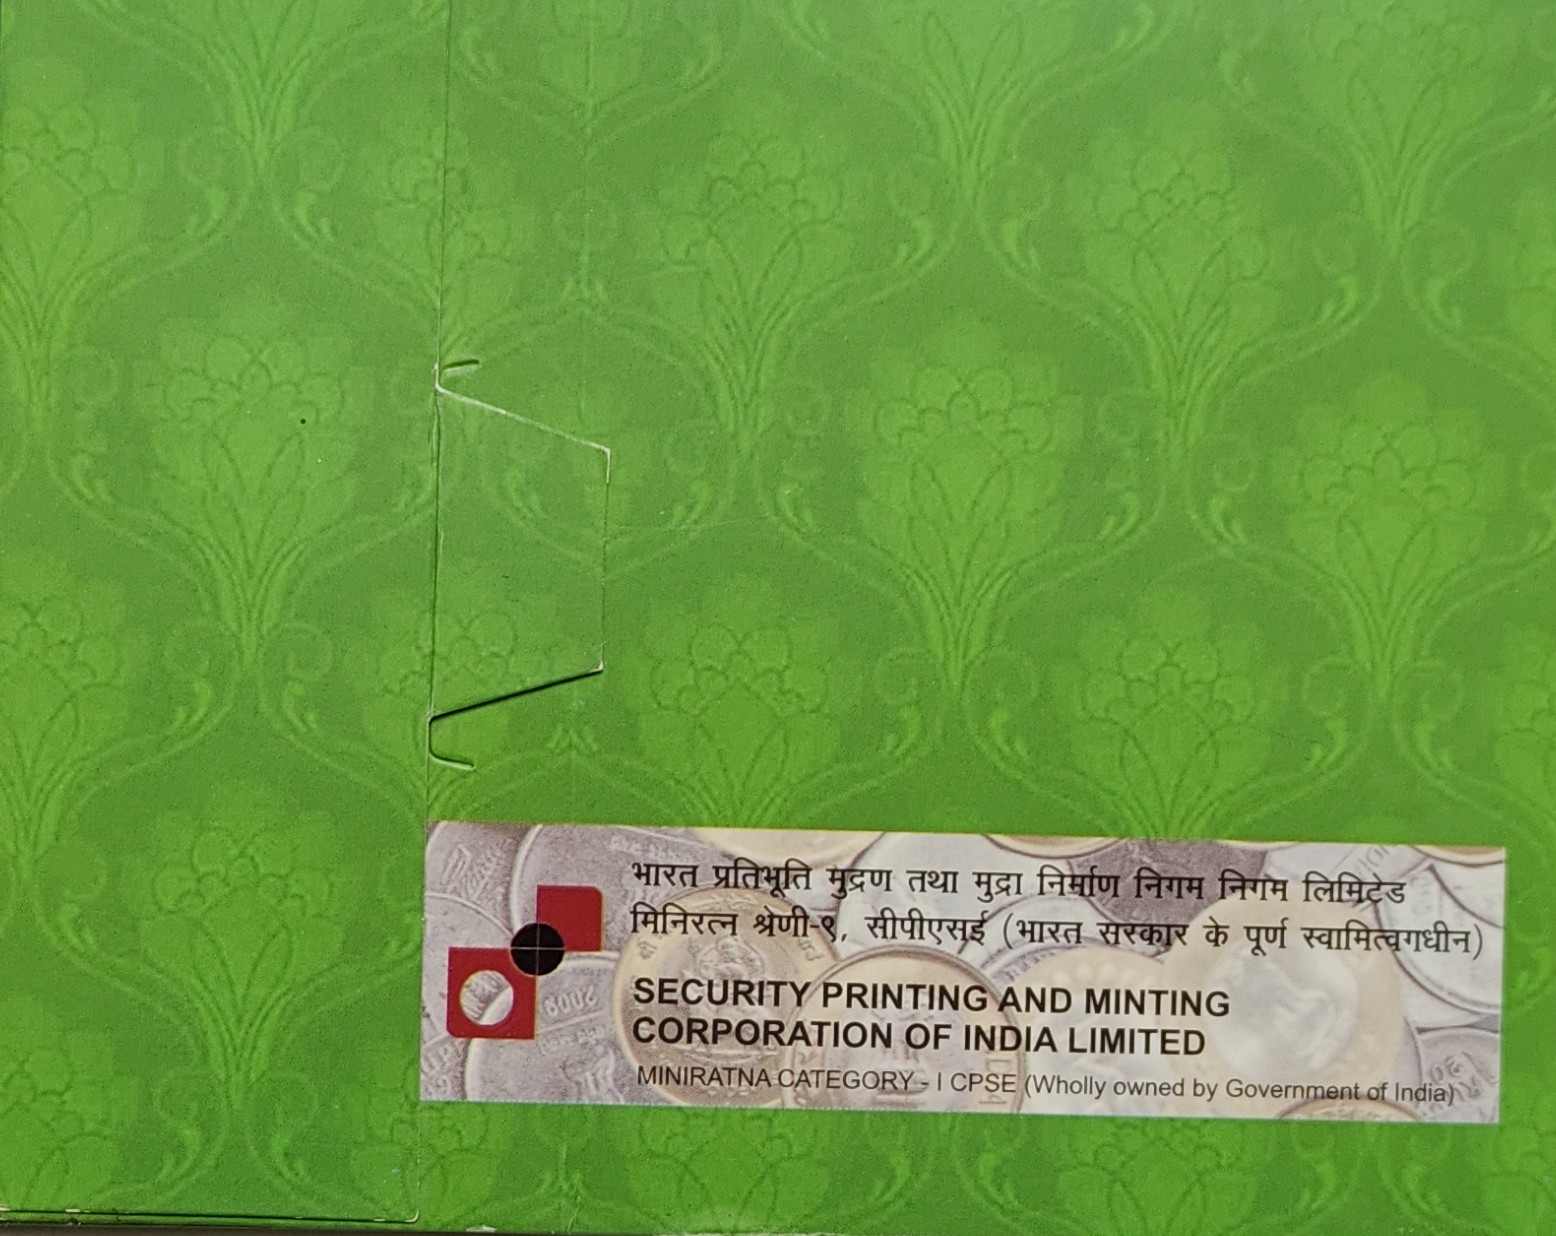 भारत प्रतिभूति मुद्रण तथा मुद्रा निर्माण निगम निगम लिमिटेड
मिनिरत्न श्रेणी-९, सीपीएसई (भारत सरकार के पूर्ण स्वामित्वगधीन)
SECURITY PRINTING AND MINTING
CORPORATION OF INDIA LIMITED
MINIRATNA CATEGORY - I CPSE (Wholly owned by Government of India)